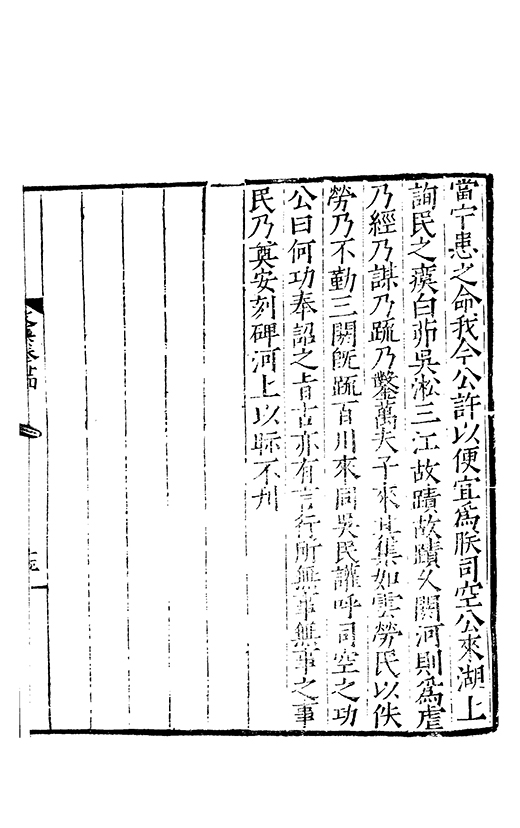 當宁患之命我今公許以便宜爲朕司空公來湖上
詢民之瘼白茆吳淞三江故蹟故蹟久閼河則爲虐
乃經乃謀乃疏乃鑿萬夫子來其集如雲勞民以佚
勞乃不勤三閼旣疏百川來同吳民讙呼司空之功
公曰何功奉詔之旨古亦有言行所無事無事之事
民乃奠安刻碑河上以眎不刋